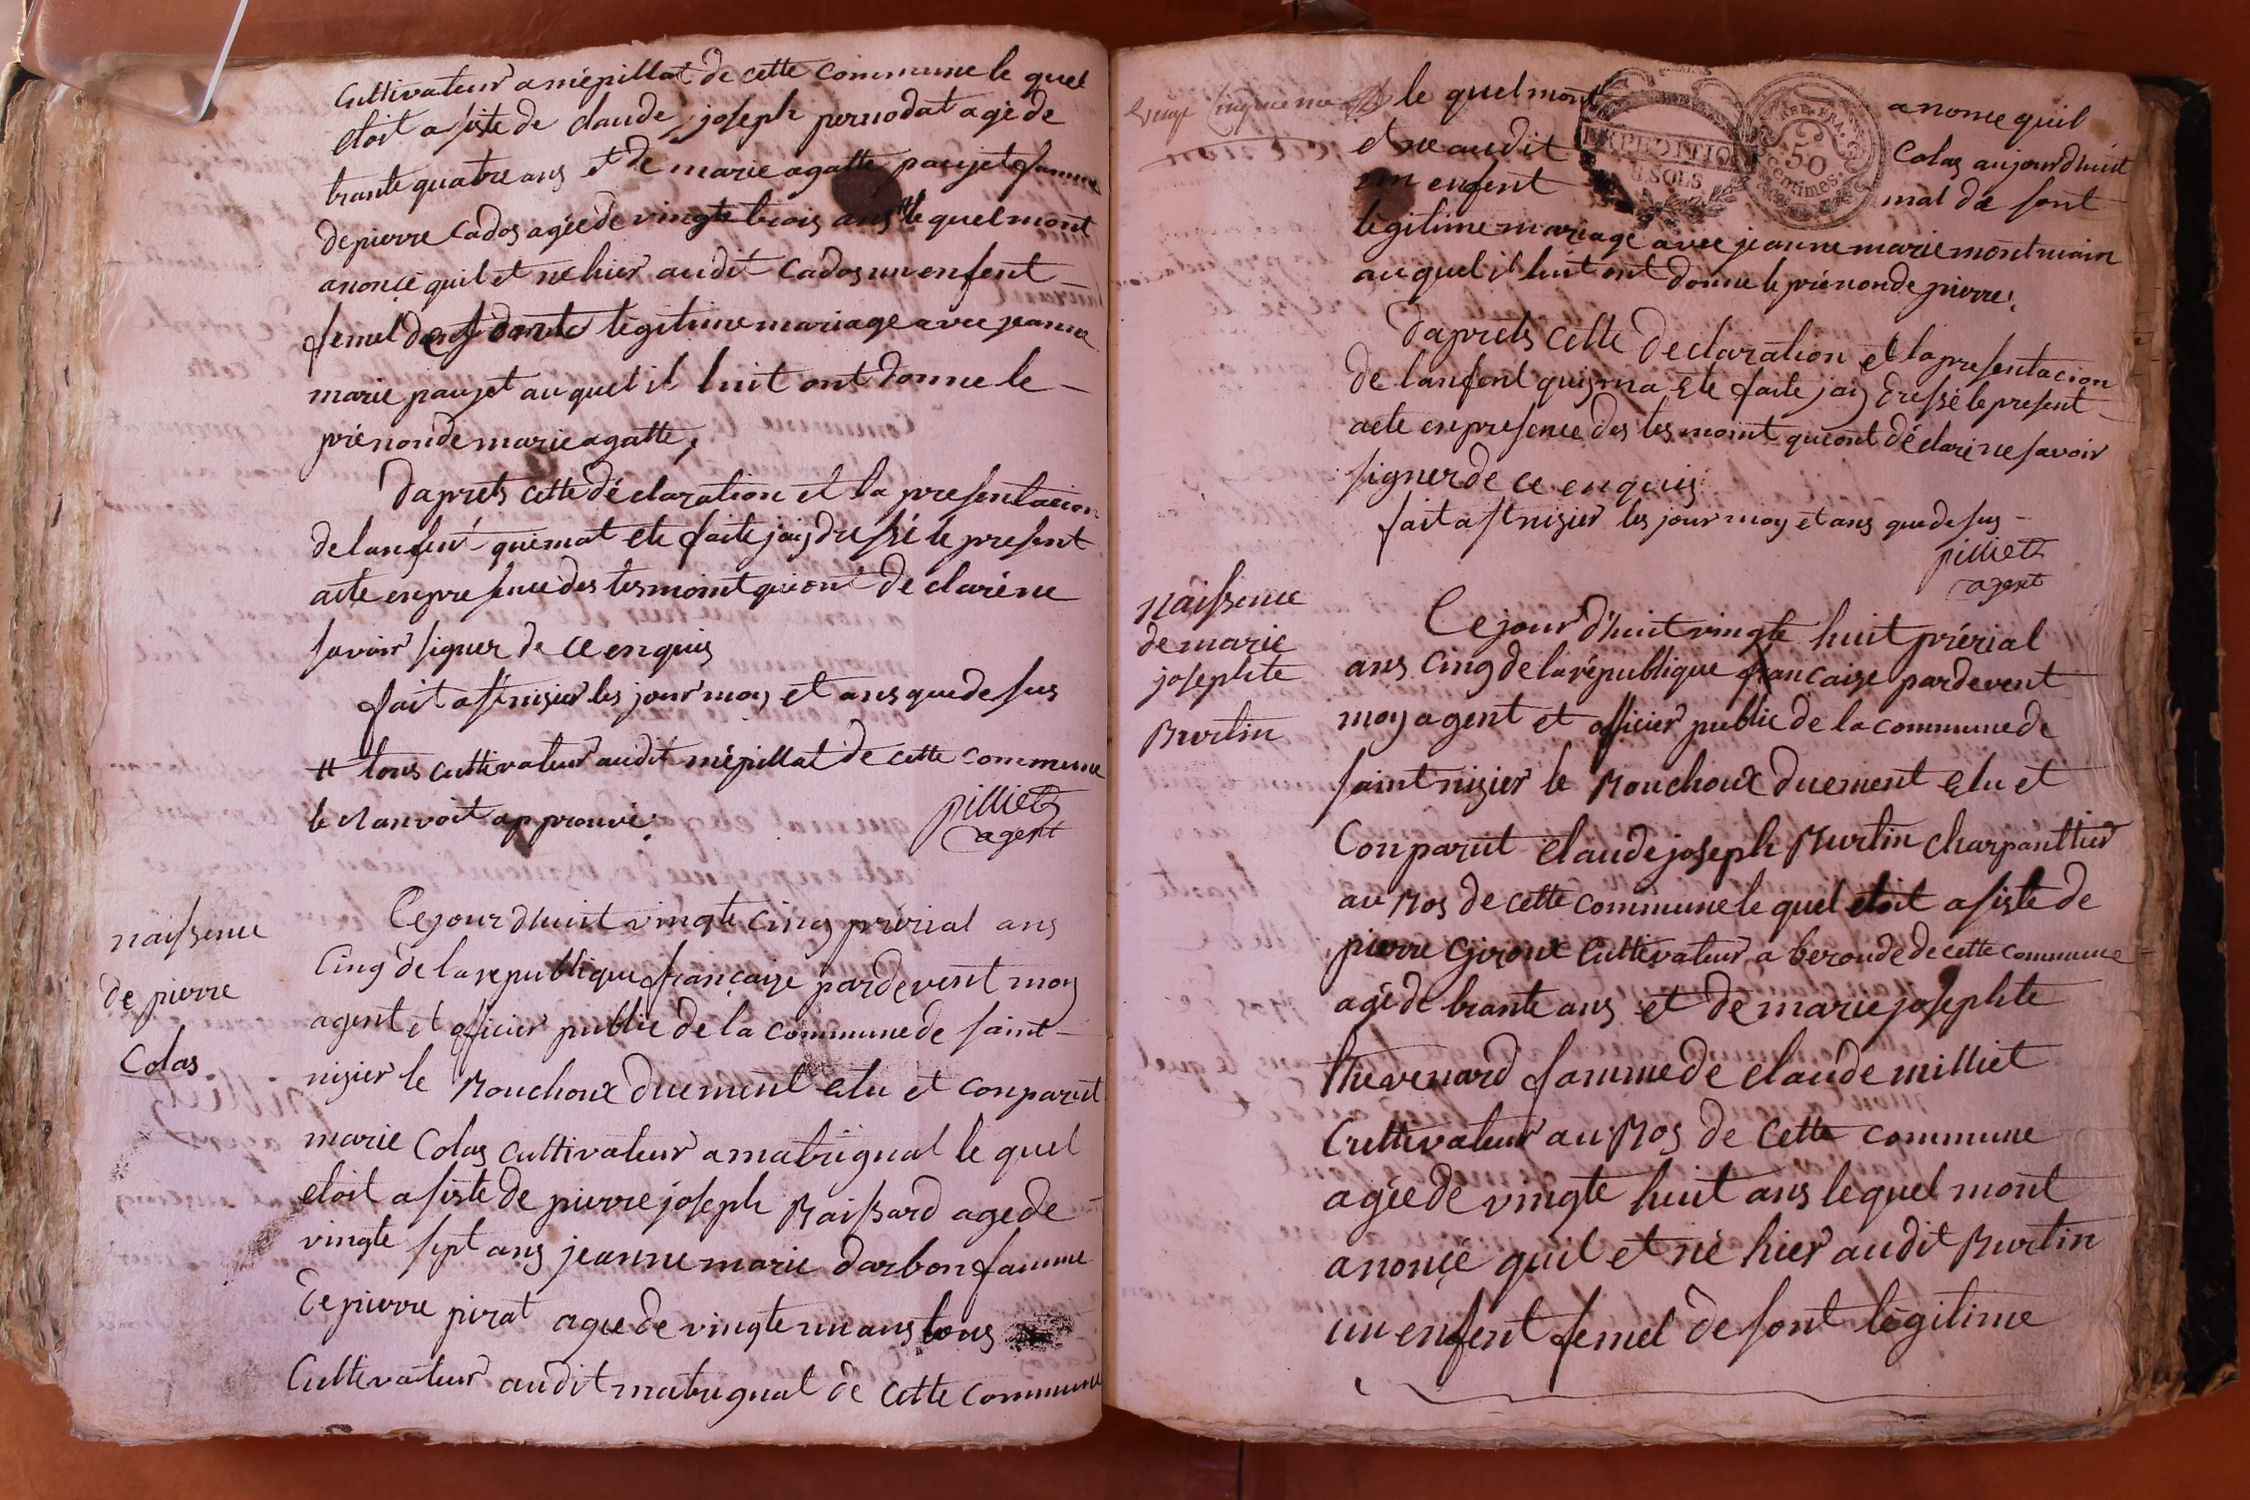 Cultivateur a mépillat de cette commune le quel
etoit asisté de claude joseph pernodat agé de
trante quatre ans et de marie agatte paujet famme
de pierre Cados agéede vingte trois ans # le quel mont
anoncé quil et né hier audit Cados un enfent
femel de font légitime mariage avec jeanne
marie paujet au quel il luit ont donne le
prénon de marie agatte,
Daprets cette déclaration et la presentacion
de lanfent qui mat ete faite jaiy dressé le present
acte en presence des tesmoint qui ont de claré ne
savoir signer de ce enquis
fait a st nisier les jour moy et ans que de sus
# tous cultivateur audit mépillat de cette commune
le ranvoit approuvé.
pilliet
agent
naissence
de pierre
Colas
Cejourdhuit vingte cinq prérial ans
Cinq de la republique francaize pardevent moy
agent et oficier public de la commune de saint
nisier le Bouchoux duement elu et conparut
marie Colas cultivateur a matrignal le quel
etoit asisté de pierre joseph Baissard agé de
vingte sept ans jeanne marie darbon famme
de pierre pirat agée de vingte un ans tous
Cultivateur audit matrignal de cette commune
le quel mont anonce quil
et ne audit Colas aujourdhuit
un enfent mal de font
légitime mariage avec jeanne marie montmain
au quel il luit ont donne le prénon de pierre.
EXPEDITION
SOLS
REP. FRA.
50
centimes.
Daprets cette declaration et la presentacion
de lanfent quy ma ete faite jaiy dressé le present
acte en presence des tesmoint qui ont déclaré ne savoir
signer de ce enquis
fait a st nisier les jour moy et ans que de sus
pilliet
agent
Naissence
de marie
josephte
Burtin
Ce jour d'huit vingte huit prérial
ans Cinq de la république francaize pardevent
moy agent et officier public de la commune de
saint nisier le Bouchoux duement elu et
Conparut claude joseph Burtin charpanttier
au Bos de cette commune le quel etoit asisté de
pierre Giroux Cultivateur a beroude de cette commune
agé de trante ans et de marie josephte
thevenard famme de claude milliet
Cultivateur au Bos de cette commune
agée de vingte huit ans le quel mont
anoncé quil et né hier audit Burtin
un enfent femel de font légitime